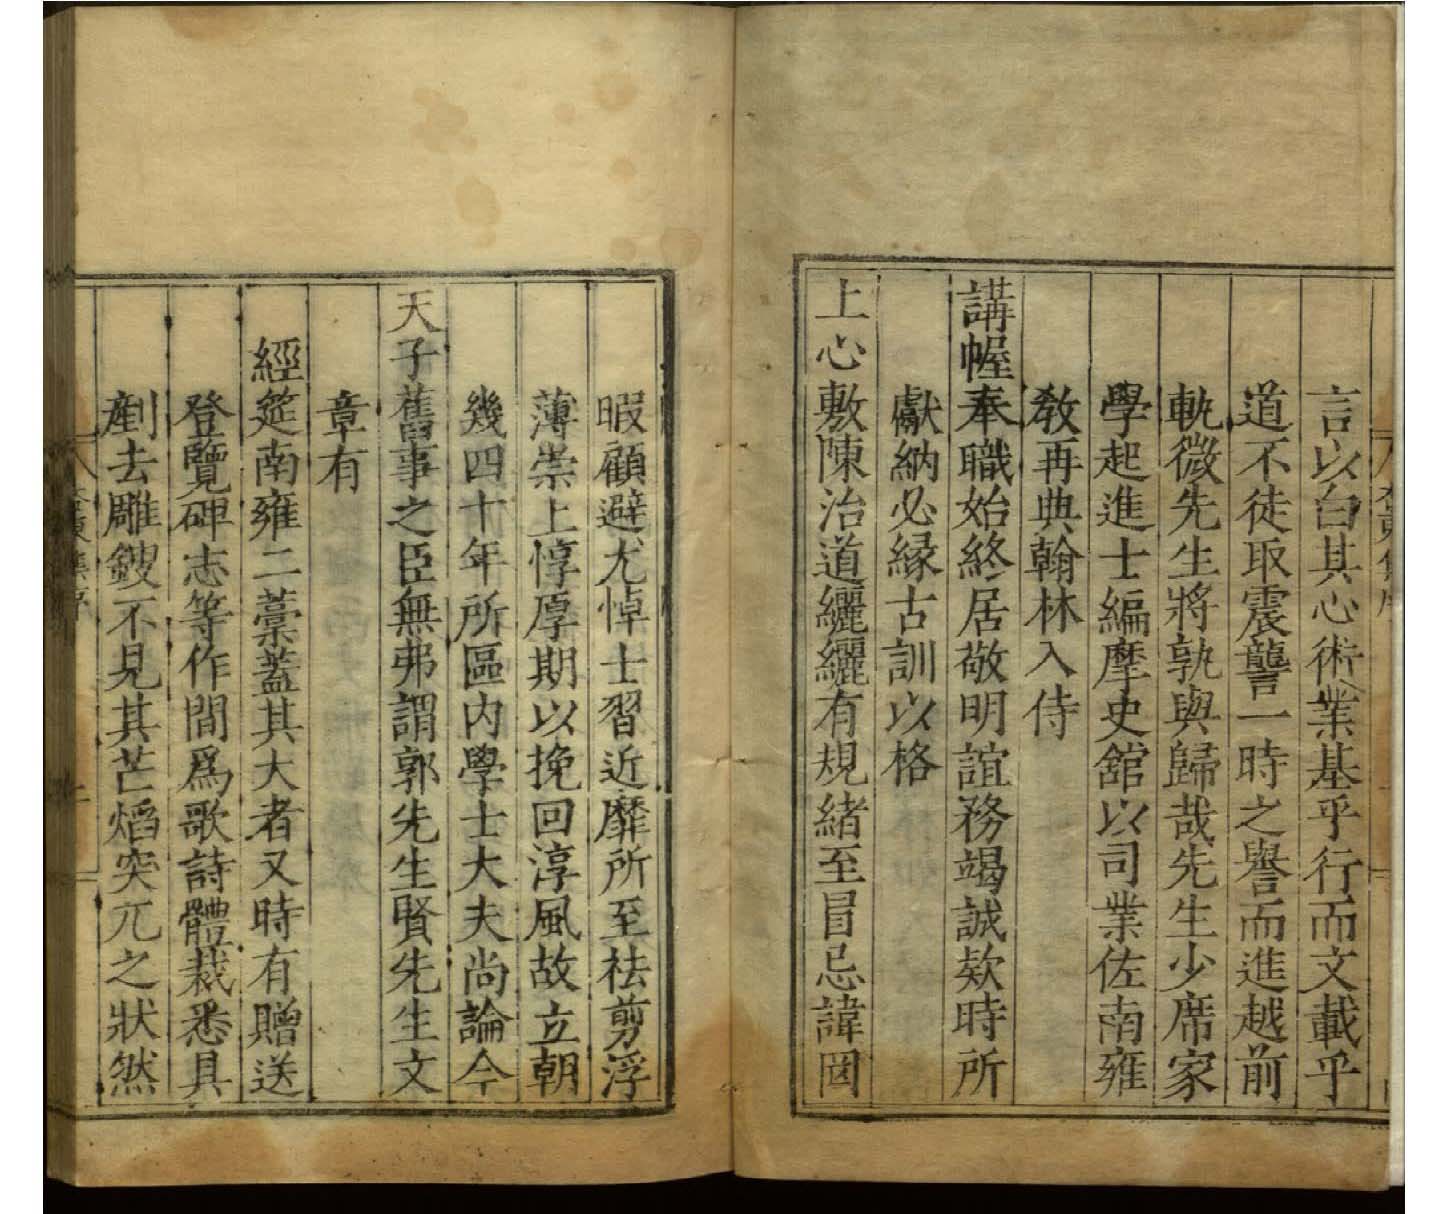 言以白其心術業基乎行而文載乎
道不徒取震讋一時之譽而進越前
軌微先生將孰與歸哉先生少席家
學起進士編摩史舘以司業佐南雍
敎再典翰林入侍
講幄奉職始終居敬明誼務竭誠欵時所
獻納必緣古訓以格
上心敷陳治道纚纚有規緒至冒忌諱罔
暇顧避尤悼士習近靡所至袪剪浮
薄崇上惇厚期以挽回淳風故立朝
幾四十年所區内學士大夫尚論今
天子舊事之臣無弗謂郭先生賢先生文
章有
經筵南雍二藁蓋其大者又時有贈送
登覽碑志等作間爲歌詩體裁悉具
劃去雕鎪不見其芒熖突兀之狀然